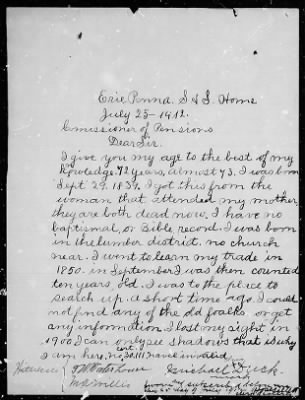 Erie Penna. S & S. Home
July 25- 1912.
Comissioner of Pensions
Dear Sir.
I give you my age to the best of my
knowledge 72 years, almost 73. I was born
Sept 29. 1839. I got this from the
woman that attended my mother,
they are both dead now. I have no
baptismal, or Bible record. I was born
in the lumber district. no church
near. I went to learn my trade in
1850- in September I was then counted
ten years, old. I was to the place to
search up a short time ago. I could
not find any of the old foalks or get
any information. I lost my sight in
1900 I can only see shadows that is why
I am here, cert. no,
Michael
mark
Witnesses
sworn and subscribed before
day of July 1912